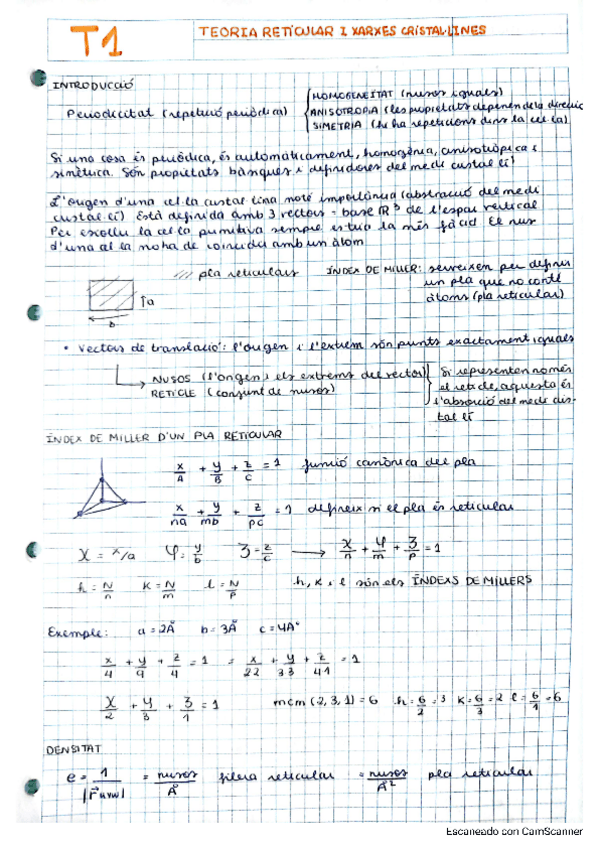 T1
TEORIA RETICULAR I XARXES CRISTAL·LINES
INTRODUCCIÓ
HOMOGENEÏTAT (nusos iguals)
Periodicitat (repetició periòdica)
ANISOTROPIA (les propietats depenen de la direcció
SIMETRIA (hi ha repeticions dins la cel·la)
Si una cosa és periòdica, és automàticament, homogènia, anisotròpica i
simètrica. Són propietats bàsiques i definidores del medi cristal·lí!
L'origen d'una cel·la cristal·lina no té importància (abstracció del medi
cristal·lí) Està definida amb 3 vectors = base ℝ³ de l'espai vectorial
Per escollir la cel·la primitiva sempre es tria la més fàcil El nus
d'una cel·la no ha de coincidir amb un àtom
pla reticulars
ÍNDEX DE MILLER: serveixen per definir
un pla que no conté
àtoms (pla reticular)
a
b
• Vectors de translació: l'origen i l'extrem són punts exactament iguals
NUSOS (l'origen i els extrems del vector)
RETICLE (conjunt de nusos)
Si representen només
el reticle, aquesta és
l'absorció del medi cris-
tal·lí
ÍNDEX DE MILLER D'UN PLA RETICULAR
x/A + y/B + z/C = 1 funció canònica del pla
x/na + y/mb + z/pc = 1 defineix si el pla és reticular
X = x/a Y = y/b Z = z/c → X/n + Y/m + Z/p = 1
h = N/n K = N/m l = N/p h, k, i l són els ÍNDEXS DE MILLERS
Exemple: a = 2Å b = 3Å c = 4Å
x/4 + y/9 + z/4 = 1 = x/22 + y/33 + z/41 = 1
X/2 + Y/3 + Z/1 = 1 mcm (2, 3, 1) = 6 h = 6/2 = 3 K = 6/3 = 2 l = 6/1 = 6
DENSITAT
e = 1/|r uvw| = nusos/Å filera reticular = nusos/Å² pla reticular
Escaneado con CamScanner